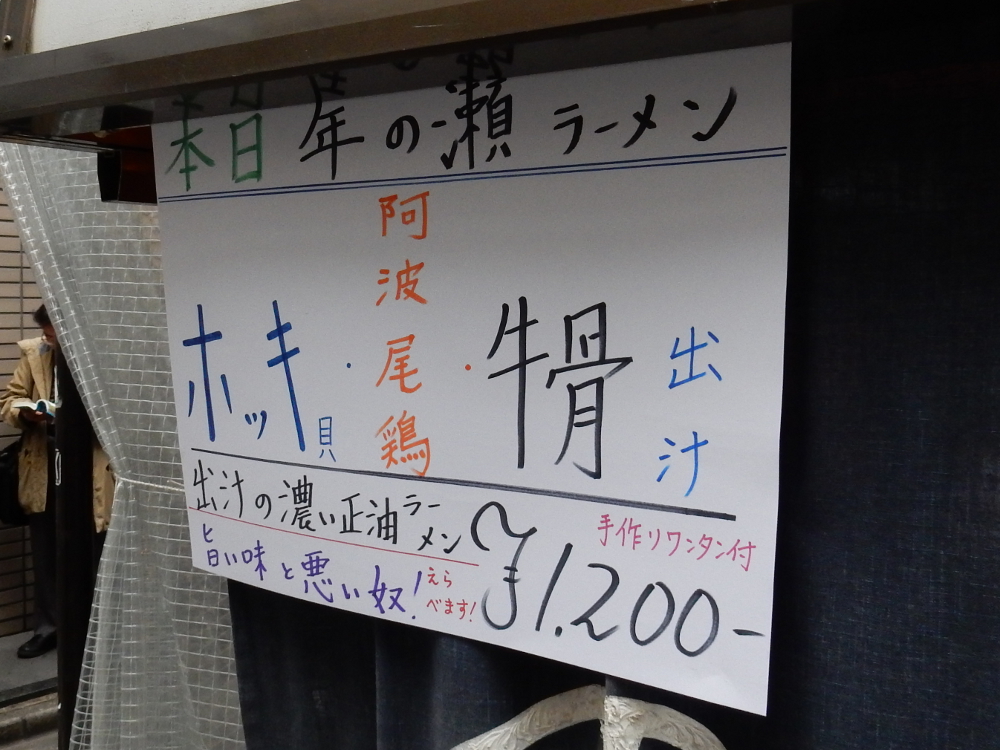 本日 年の瀬 ラーメン
ホッキ貝・阿波尾鶏・牛骨 出汁
出汁の濃い正油ラーメン
手作りワンタン付
旨い味と悪い奴! えらべます!
¥1.200-